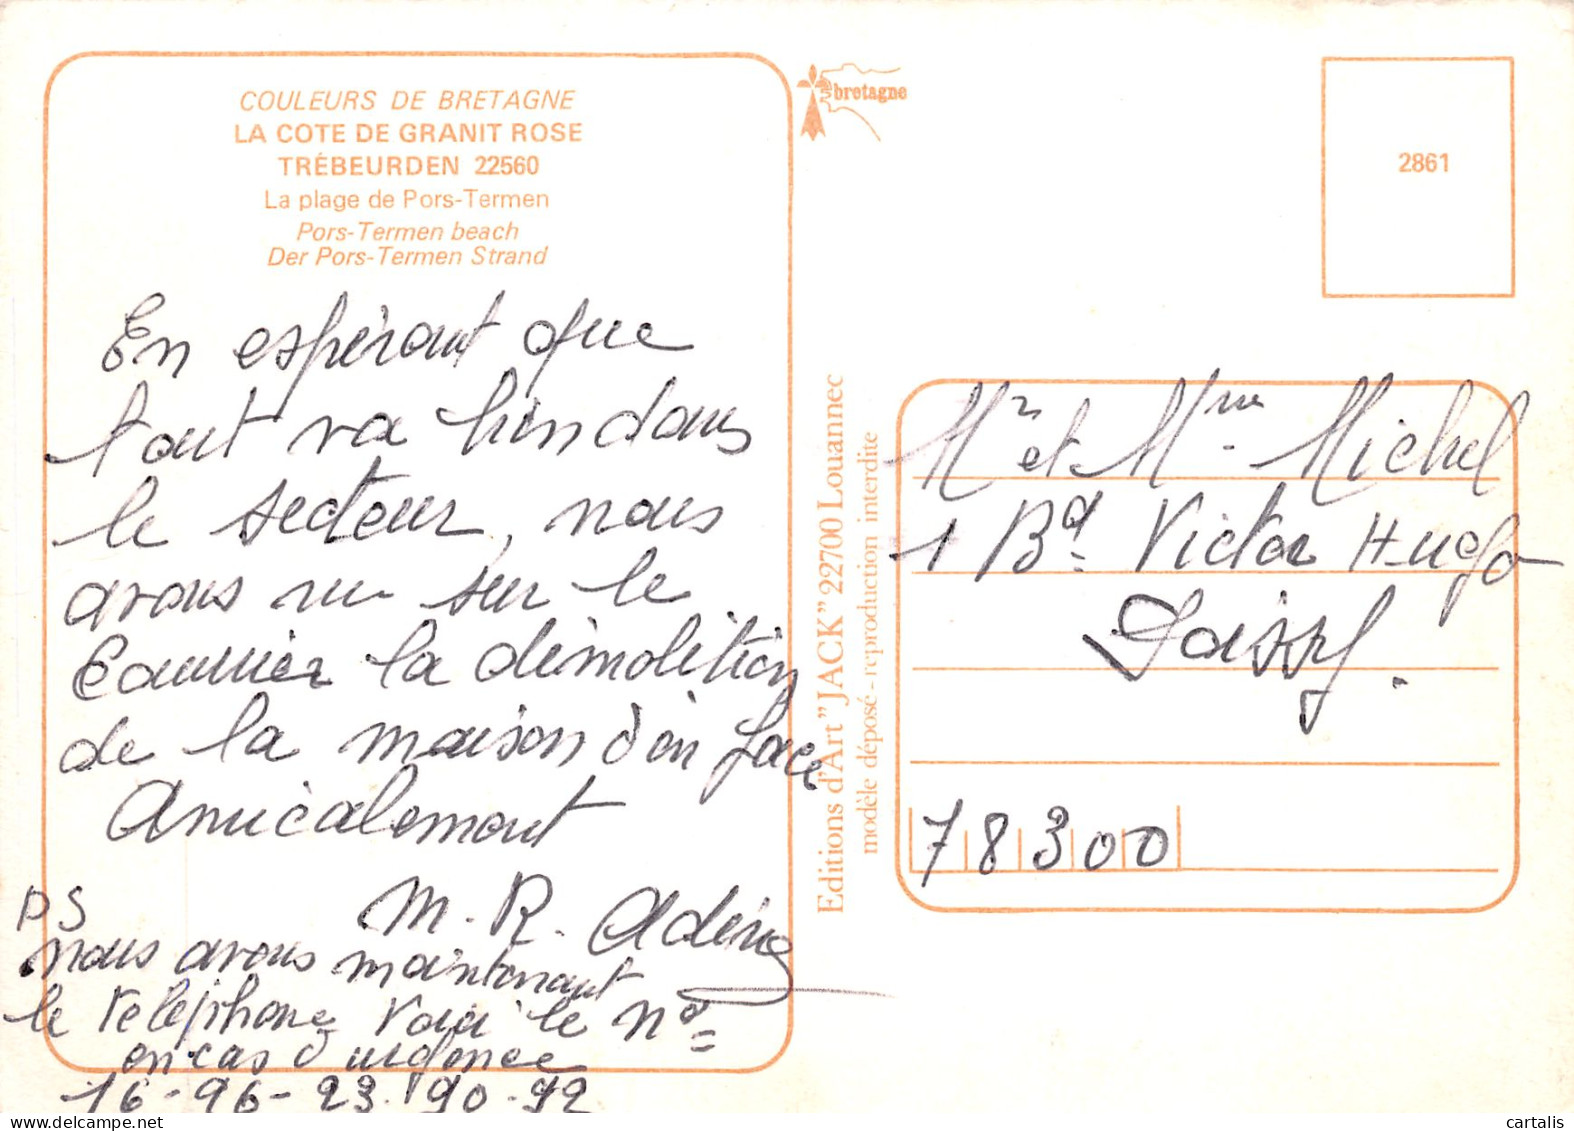 COULEURS DE BRETAGNE
LA COTE DE GRANIT ROSE
TRÉBEURDEN 22560
La plage de Pors-Termen
Pors-Termen beach
Der Pors-Termen Strand
En espérant que
tout va bien dans
le secteur, nous
avons vu sur le
Courrier la démolition
de la maison d'en face
Amicalement
M. R. Adeline
PS
nous avons maintenant
le téléphone voici le n°
en cas d'urgence
16-96-23.90-92
bretagne
Editions d'Art "JACK" 22700 Louannec
modèle déposé - reproduction interdite
2861
Mr et Mme Michel
1 Bd Victor Hugo
Poissy.
78300
cartalis